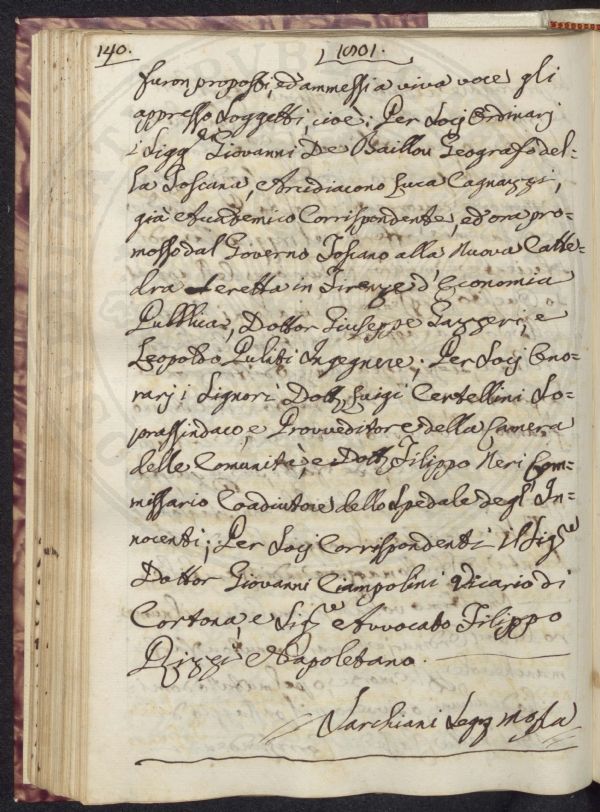 140.
1801.
furon proposti, ed ammessi a viva voce gli
appresso Soggetti, cioè: Per Socj Ordinarj
i Sigg.ri Giovanni De Baillou Geografo del=
la Toscana, Arcidiacono Luca Cagnazzi,
già Accademico Corrispondente, ed ora pro=
mosso dal Governo Toscano alla Nuova Catte=
dra eretta in Firenze d'Economia
Pubblica, Dottor Giuseppe Gazzeri, e
Leopoldo Puliti Ingegnere; Per Socj Ono=
rarj i Signori Dott. Luigi Certellini So=
prassindaco, e Provveditore della Camera
delle Comunità, e Dott. Filippo Neri Com=
missario Coadiutore dello Spedale degl'In=
nocenti; Per Socj Corrispondenti Il Sig.re
Dottor Giovanni Ciampolini Vicario di
Cortona, e Sig.re Avvocato Filippo
Rizzi Napoletano.
Sarchiani